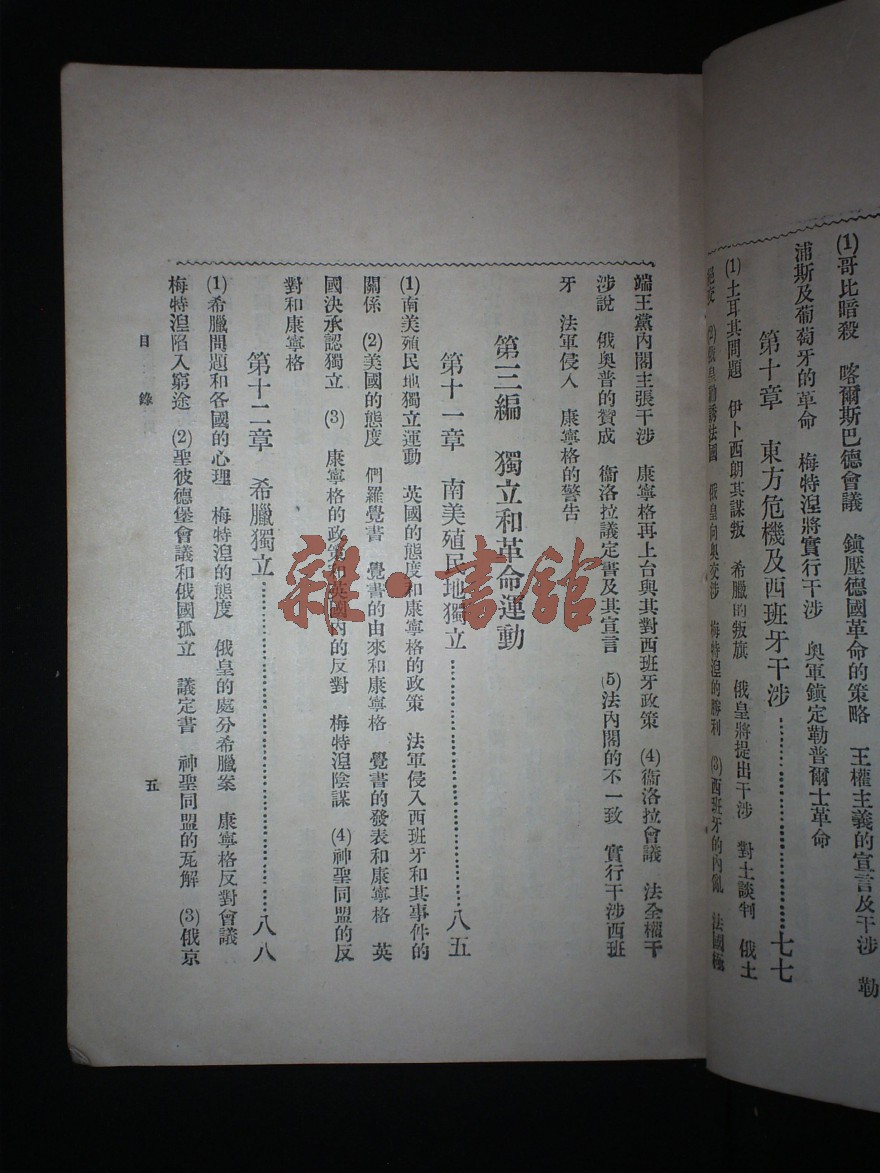 (1)哥比暗殺　喀爾斯巴德會議　鎮壓德國革命的策略　王權主義的宣言及干涉　勒
浦斯及葡萄牙的革命　梅特湼將實行干涉　奧軍鎮定勒普爾士革命
第十章　東方危機及西班牙干涉……………………七七
(1)土耳其問題　伊卜西朗其謀叛　希臘的叛旗　俄皇將提出干涉　對土談判　俄土
法國　俄皇向奧交涉　梅特湼的勝利　(3)西班牙的內亂　法國極
端王黨內閣主張干涉　康寧格再上台與其對西班牙政策　(4)衞洛拉會議　法全權干
涉說　俄奧普的贊成　衞洛拉議定書及其宣言　(5)法內閣的不一致　實行干涉西班
牙　法軍侵入　康寧格的警告
第三編　獨立和革命運動
第十一章　南美殖民地獨立……………………八五
(1)南美殖民地獨立運動　英國的態度和康寧格的政策　法軍侵入西班牙和其事件的
關係　(2)美國的態度　們羅覺書　覺書的由來和康寧格　覺書的發表和康寧格　英
國決承認獨立　(3)　康寧格的政策和英國內的反對　梅特湼陰謀　(4)神聖同盟的反
對和康寧格
第十二章　希臘獨立……………………八八
(1)希臘問題和各國的心理　梅特湼的態度　俄皇的處分希臘案　康寧格反對會議
梅特湼陷入窮途　(2)聖彼德堡會議和俄國孤立　議定書　神聖同盟的瓦解　(3)俄京
目錄
五
雜·書館